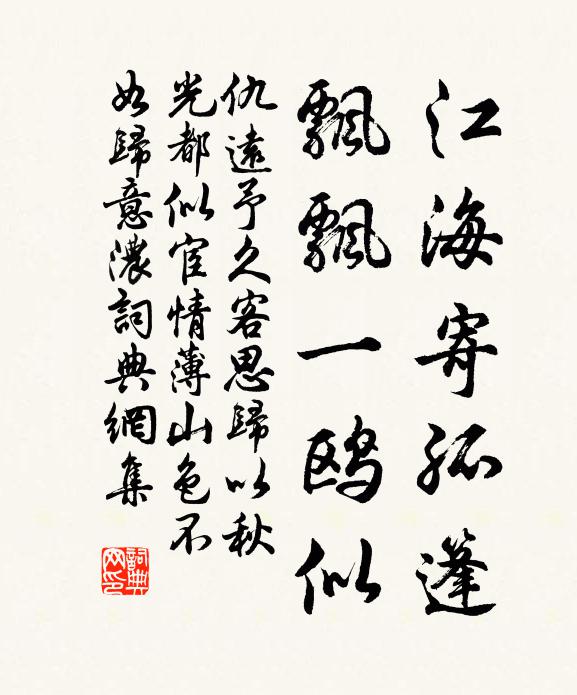 江海寄孤篷
飄飄一鸥似
仇遠予久客思歸以秋
光都似宦情薄山色不
如歸意濃詞典網集
詞典
网印